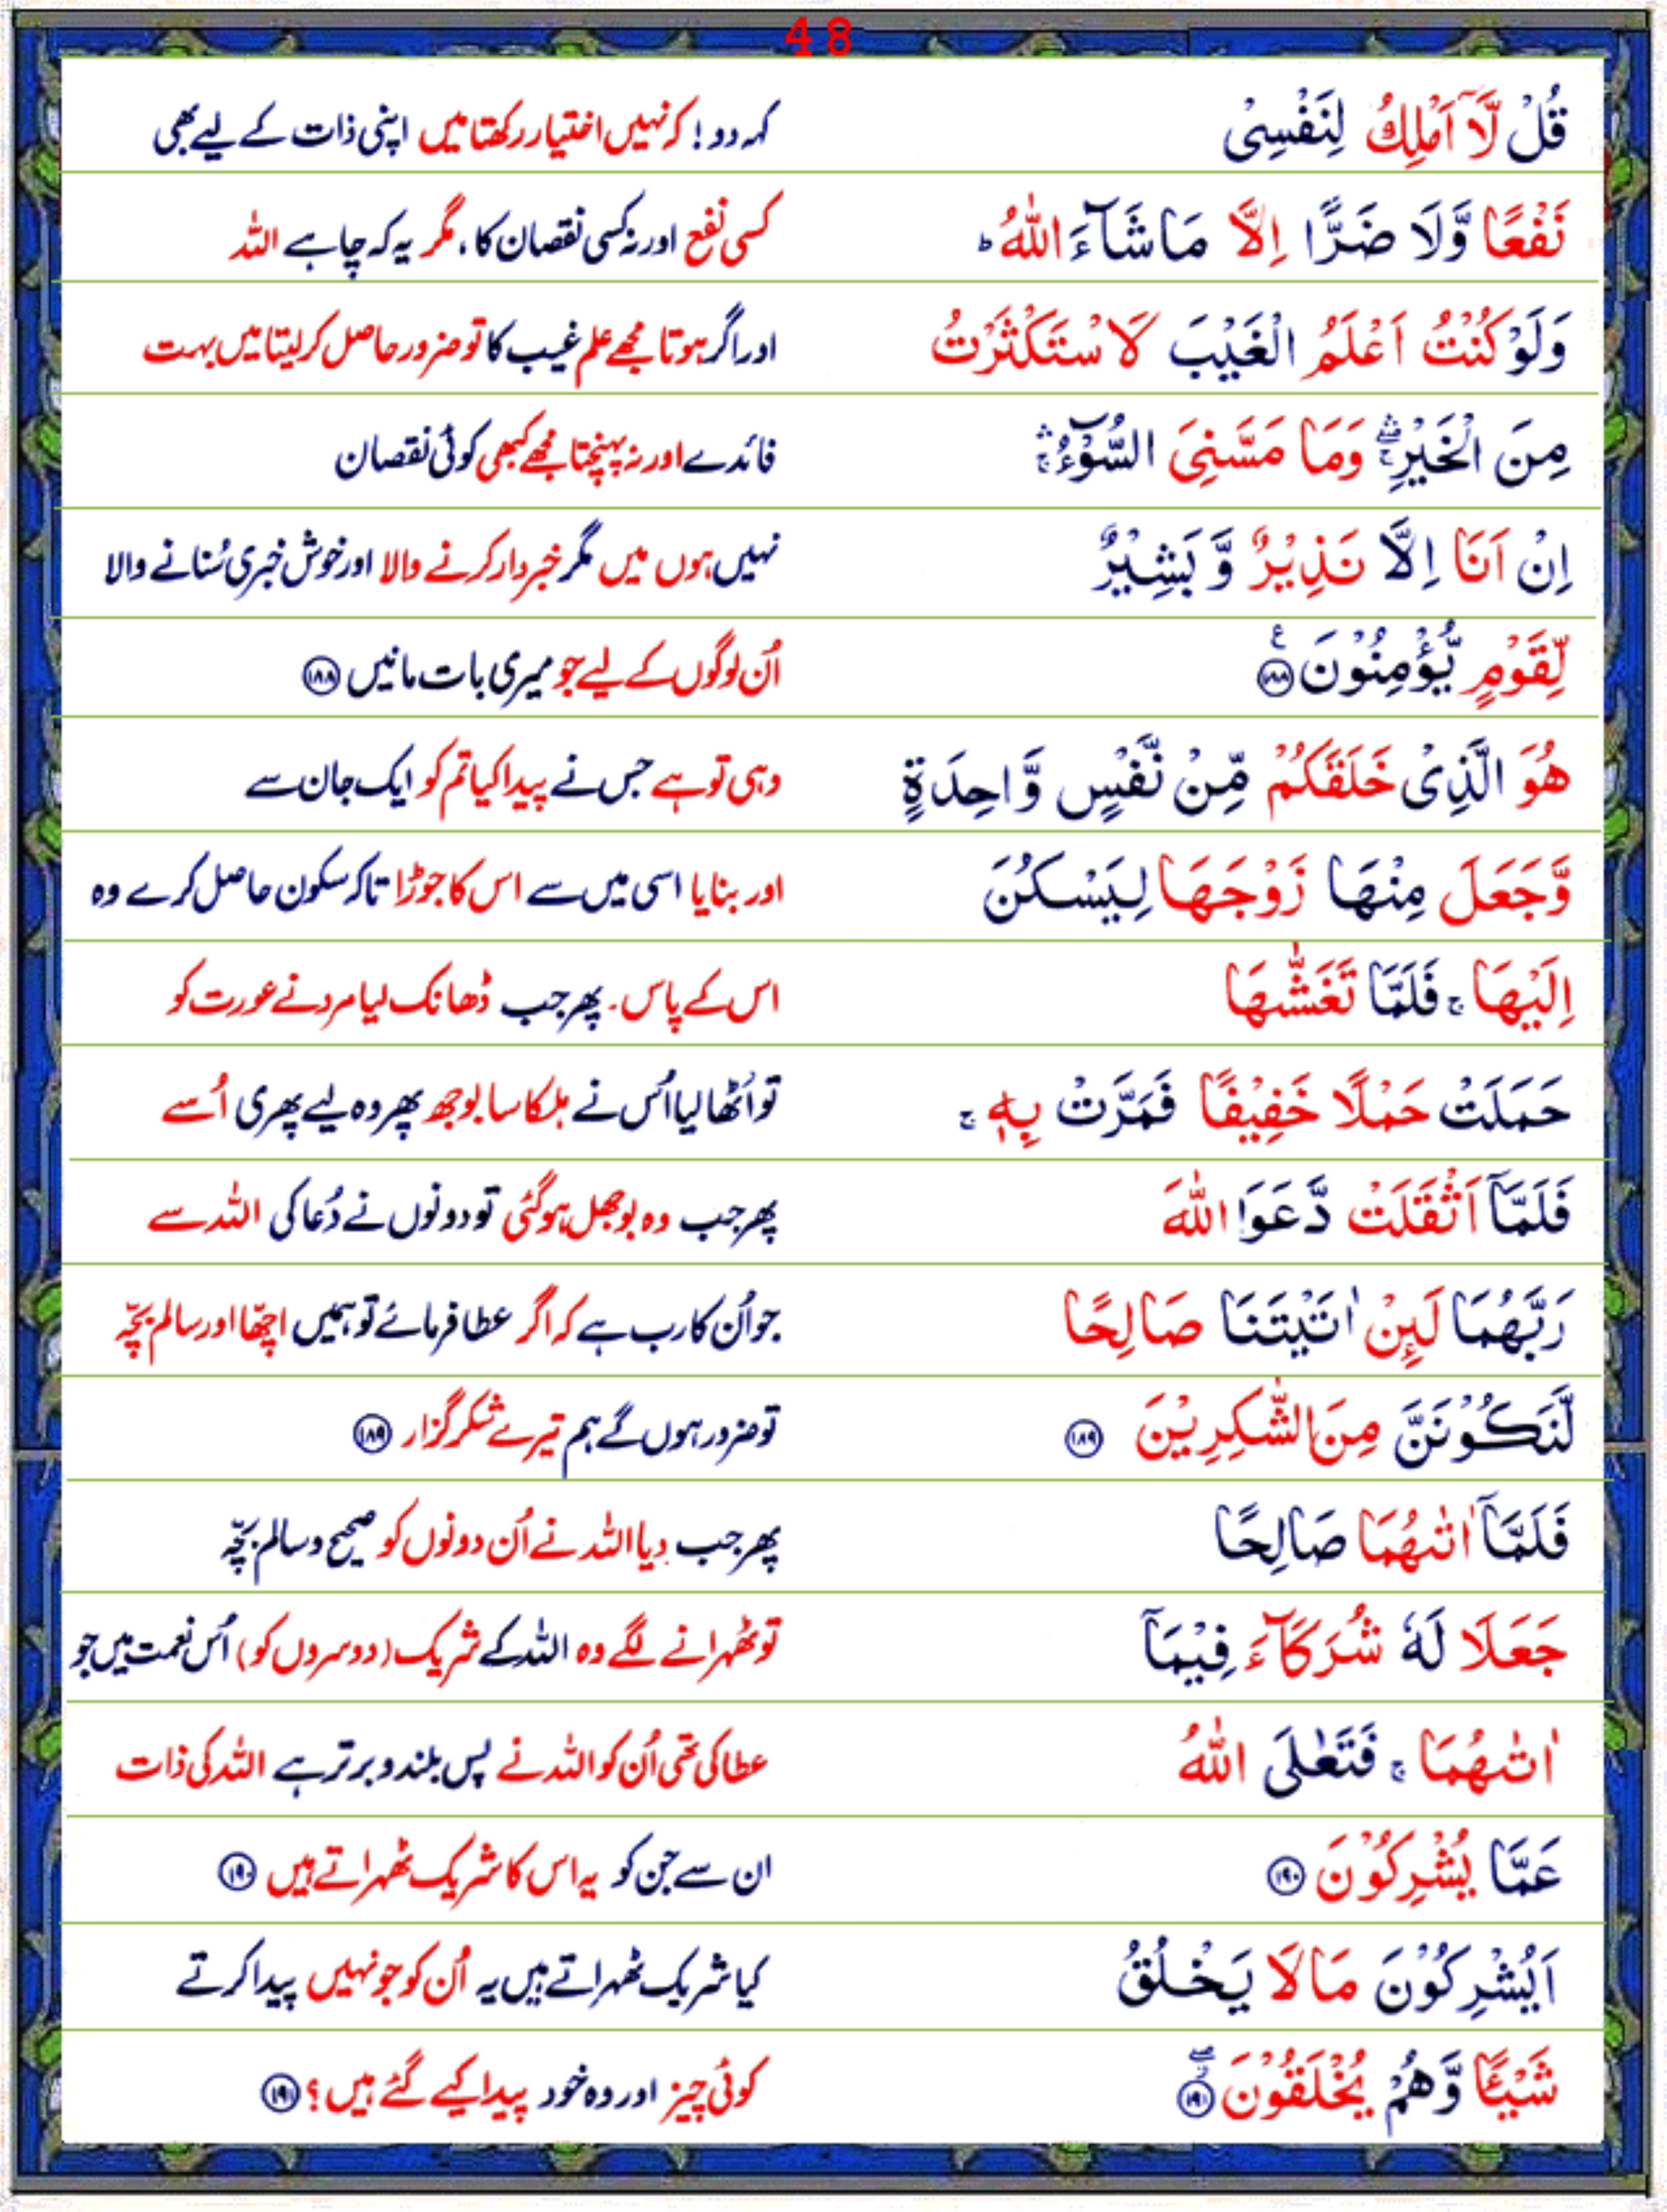 48
قُلْ لَّاۤ اَمْلِكُ لِنَفْسِیْ
کہہ دو! کہ نہیں اختیار رکھتا میں اپنی ذات کے لیے بھی
نَفْعًا وَّلَا ضَرًّا اِلَّا مَا شَآءَ اللّٰهُ ؕ
کسی نفع اور نہ کسی نقصان کا، مگر یہ کہ چاہے اللہ
وَلَوْ كُنْتُ اَعْلَمُ الْغَیْبَ لَاسْتَكْثَرْتُ
اور اگر ہوتا مجھے علم غیب کا تو ضرور حاصل کر لیتا میں بہت
مِنَ الْخَیْرِ ۛۚ وَمَا مَسَّنِیَ السُّوْٓءُ ۛۚ
فائدے اور نہ پہنچتا مجھے کبھی کوئی نقصان
اِنْ اَنَا اِلَّا نَذِیْرٌ وَّ بَشِیْرٌ
نہیں ہوں میں مگر خبردار کرنے والا اور خوش خبری سُنانے والا
لِّقَوْمٍ یُّؤْمِنُوْنَ ۧ ﴿۱۸۸﴾
اُن لوگوں کے لیے جو میری بات مانیں ﴿۱۸۸﴾
هُوَ الَّذِیْ خَلَقَكُمْ مِّنْ نَّفْسٍ وَّاحِدَةٍ
وہی تو ہے جس نے پیدا کیا تم کو ایک جان سے
وَّجَعَلَ مِنْهَا زَوْجَهَا لِیَسْكُنَ
اور بنایا اسی میں سے اس کا جوڑا تاکہ سکون حاصل کرے وہ
اِلَیْهَا ۚ فَلَمَّا تَغَشّٰىهَا
اس کے پاس۔ پھر جب ڈھانک لیا مرد نے عورت کو
حَمَلَتْ حَمْلًا خَفِیْفًا فَمَرَّتْ بِهٖ ۚ
تو اُٹھا لیا اُس نے ہلکا سا بوجھ پھر وہ لیے پھری اُسے
فَلَمَّاۤ اَثْقَلَتْ دَّعَوَا اللّٰهَ
پھر جب وہ بوجھل ہوگئی تو دونوں نے دُعا کی اللہ سے
رَبَّهُمَا لَىِٕنْ اٰتَیْتَنَا صَالِحًا
جو اُن کا رب ہے کہ اگر عطا فرمائے تو ہمیں اچھّا اور سالم بچّہ
لَّنَكُوْنَنَّ مِنَ الشّٰكِرِیْنَ ﴿۱۸۹﴾
تو ضرور ہوں گے ہم تیرے شکر گزار ﴿۱۸۹﴾
فَلَمَّاۤ اٰتٰىهُمَا صَالِحًا
پھر جب دیا اللہ نے اُن دونوں کو صحیح و سالم بچّہ
جَعَلَا لَهٗ شُرَكَآءَ فِیْمَاۤ
تو ٹھہرانے لگے وہ اللہ کے شریک (دوسروں کو) اُس نعمت میں جو
اٰتٰىهُمَا ۚ فَتَعٰلَی اللّٰهُ
عطا کی تھی اُن کو اللہ نے پس بلند و برتر ہے اللہ کی ذات
عَمَّا یُشْرِكُوْنَ ﴿۱۹۰﴾
ان سے جن کو یہ اس کا شریک ٹھہراتے ہیں ﴿۱۹۰﴾
اَیُشْرِكُوْنَ مَا لَا یَخْلُقُ
کیا شریک ٹھہراتے ہیں یہ اُن کو جو نہیں پیدا کرتے
شَیْـًٔا وَّهُمْ یُخْلَقُوْنَ ﴿۱۹۱﴾
کوئی چیز اور وہ خود پیدا کیے گئے ہیں؟ ﴿۱۹۱﴾